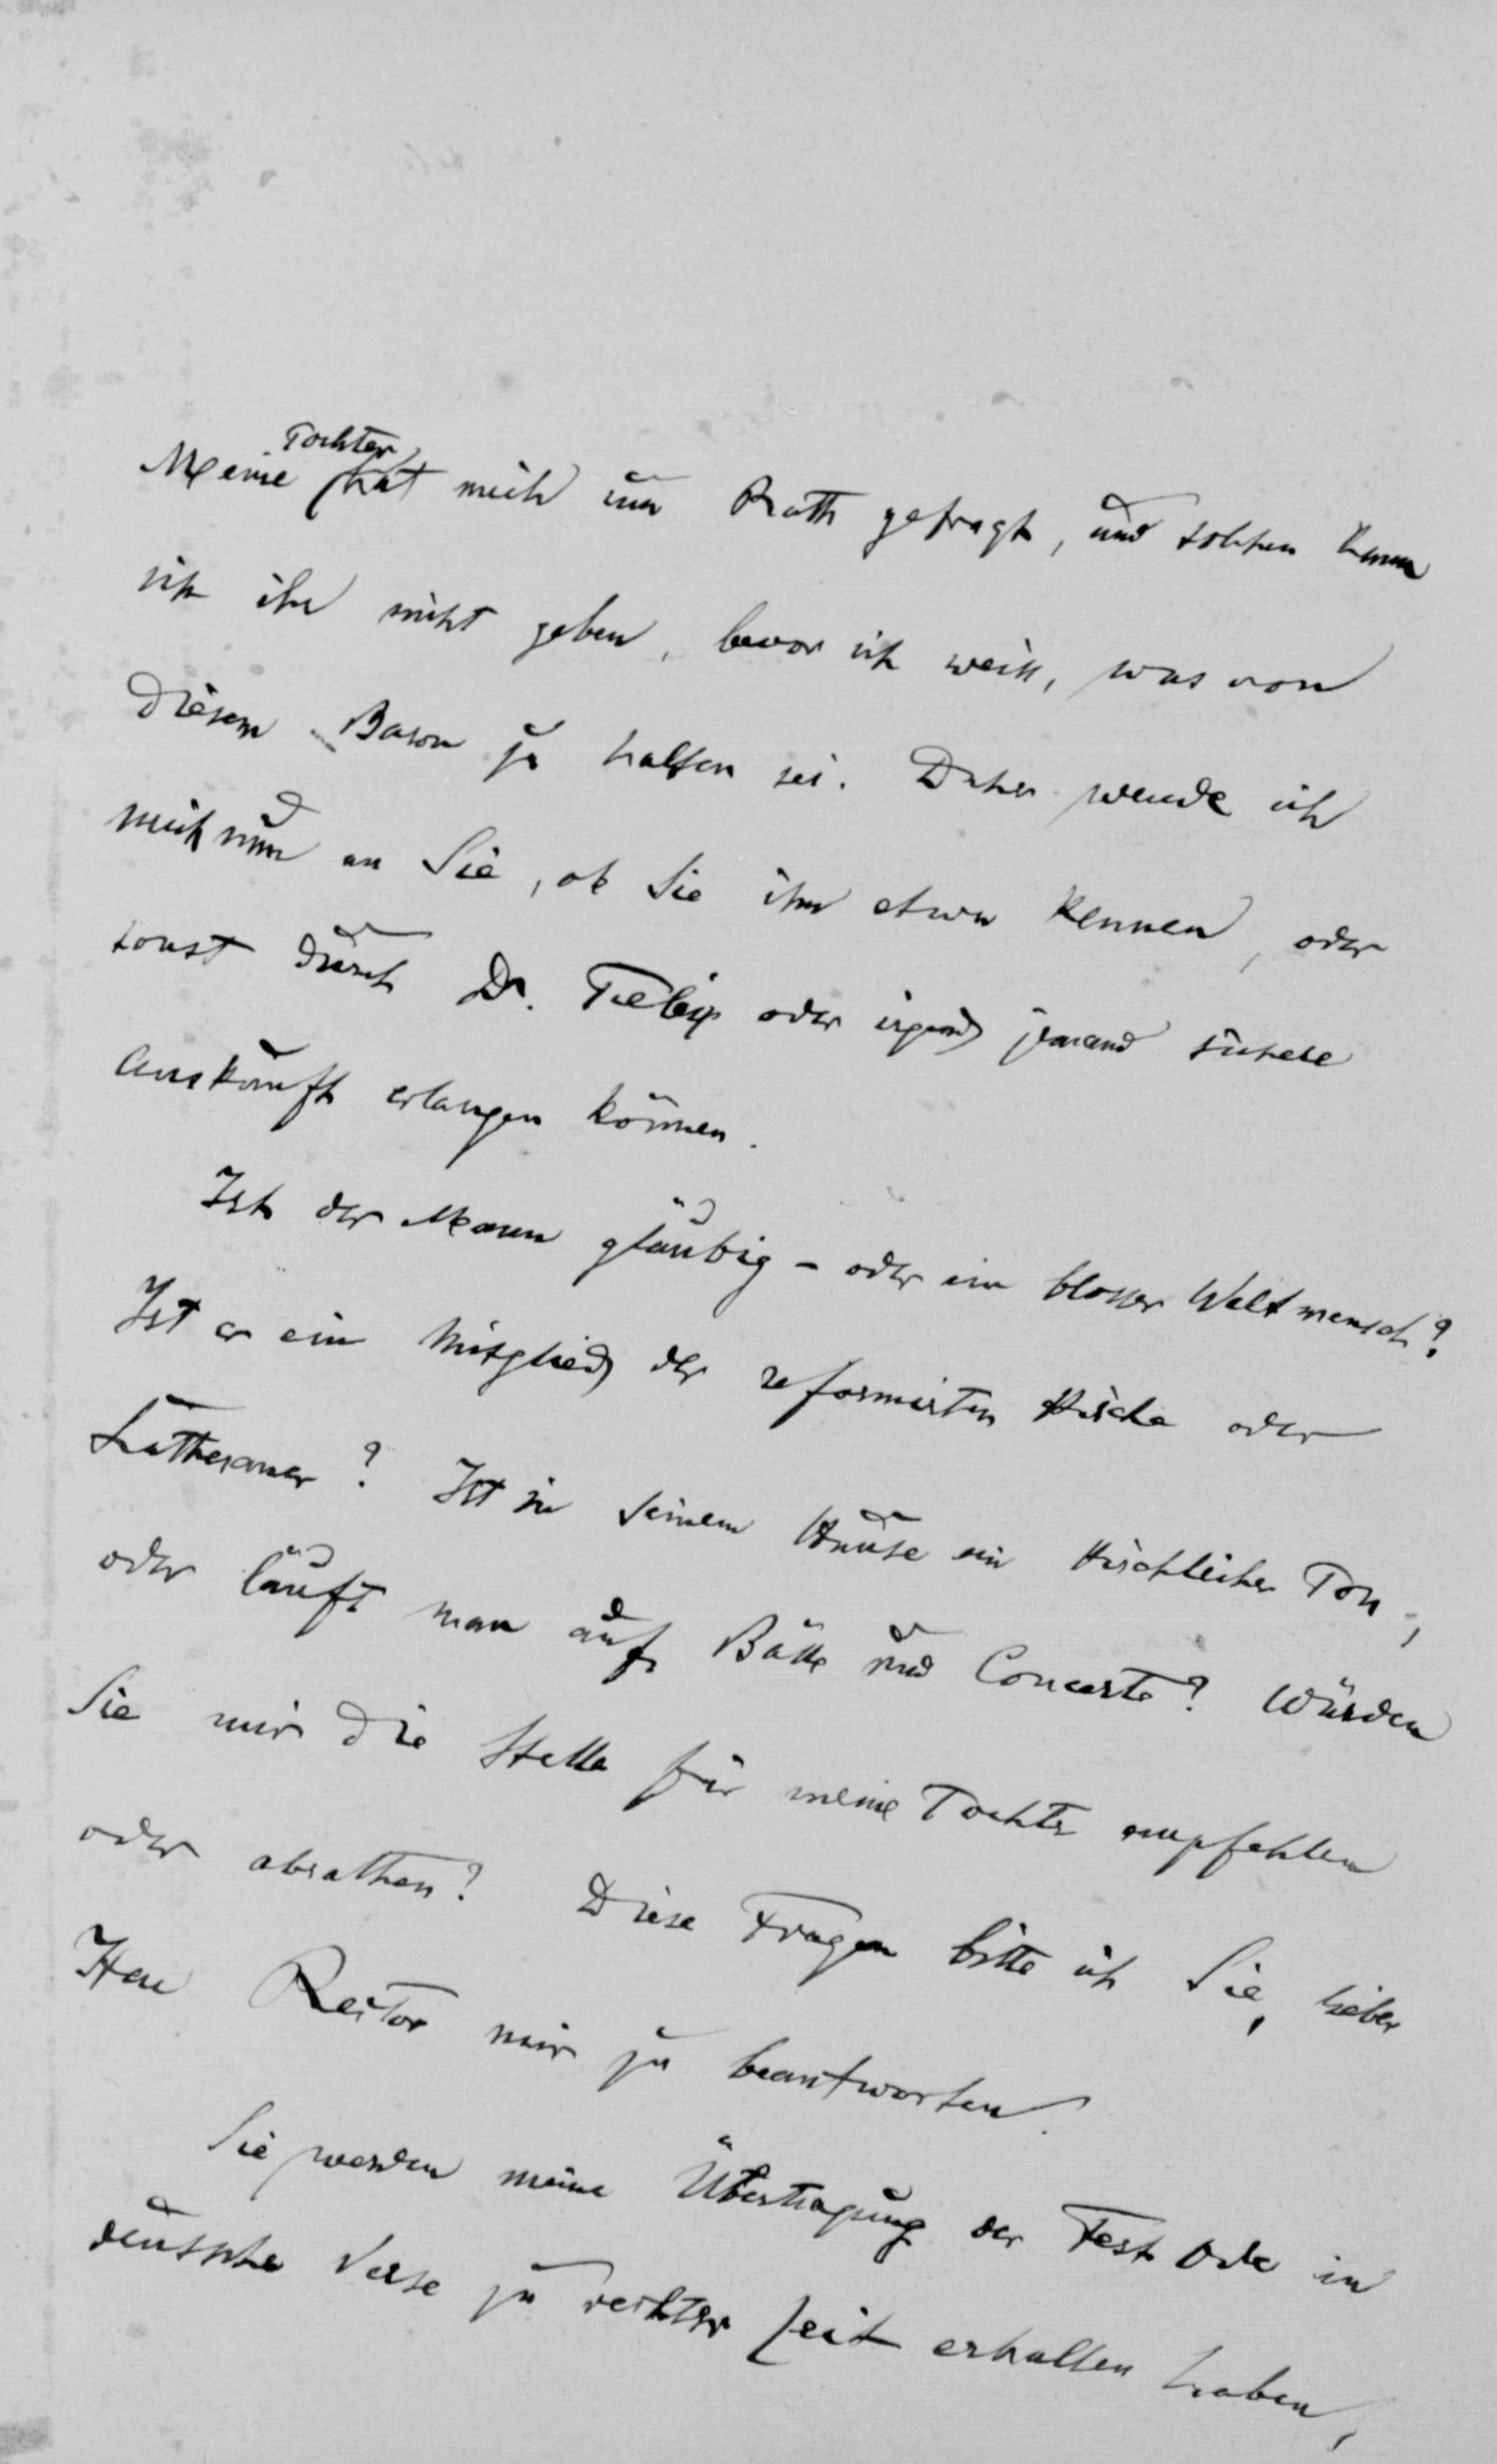 Meine Tochter hat mich um Rath gefragt, und solchen kann
ich ihr nicht geben, bevor ich weiss, was von
diesem Baron zu halten sei. Daher wende ich
mich nun an Sie, ob Sie ihn etwa kennen, oder
sonst durch Dr. oder irgend jemand sichere
Auskunft erlangen können.
Ist der Mann gläubig - oder ein blosser Weltmensch?
Ist er ein Mitglied der reformirten Kirche oder
Lutheraner? Ist in seinem Hause ein kirchlicher Ton,
oder läuft man auf Bälle und Concerte? Würden
Sie mir die Stelle für meine Tochter empfehlen
oder abrathen? Diese Fragen bitte ich Sie, lieber
Herr Rector mir zu beantworten.
Sie werden meine Übertragung der Fest Ode in
deutsche Verse zu rechter Zeit erhalten haben,